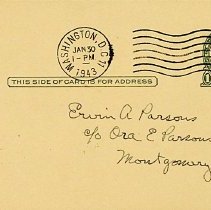 WASHINGTON, D.C. 11
JAN 30
1-PM
1943
THIS SIDE OF CARD IS FOR ADDRESS
Erwin A Parsons
c/o Ora E Parsons
Montgomery